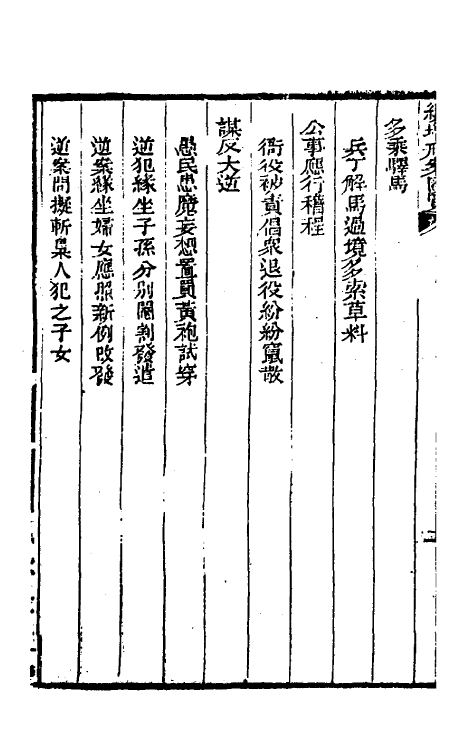 多乘驛馬
兵丁解馬過境多索草料
公事應行稽程
衙役被責倡衆退役紛紛竄散
謀反大逆
愚民患魔妄想置買黃袍試穿
逆犯緣坐子孫分別閹割發遣
逆案緣坐婦女應照新例改發
逆案問擬斬梟人犯之子女